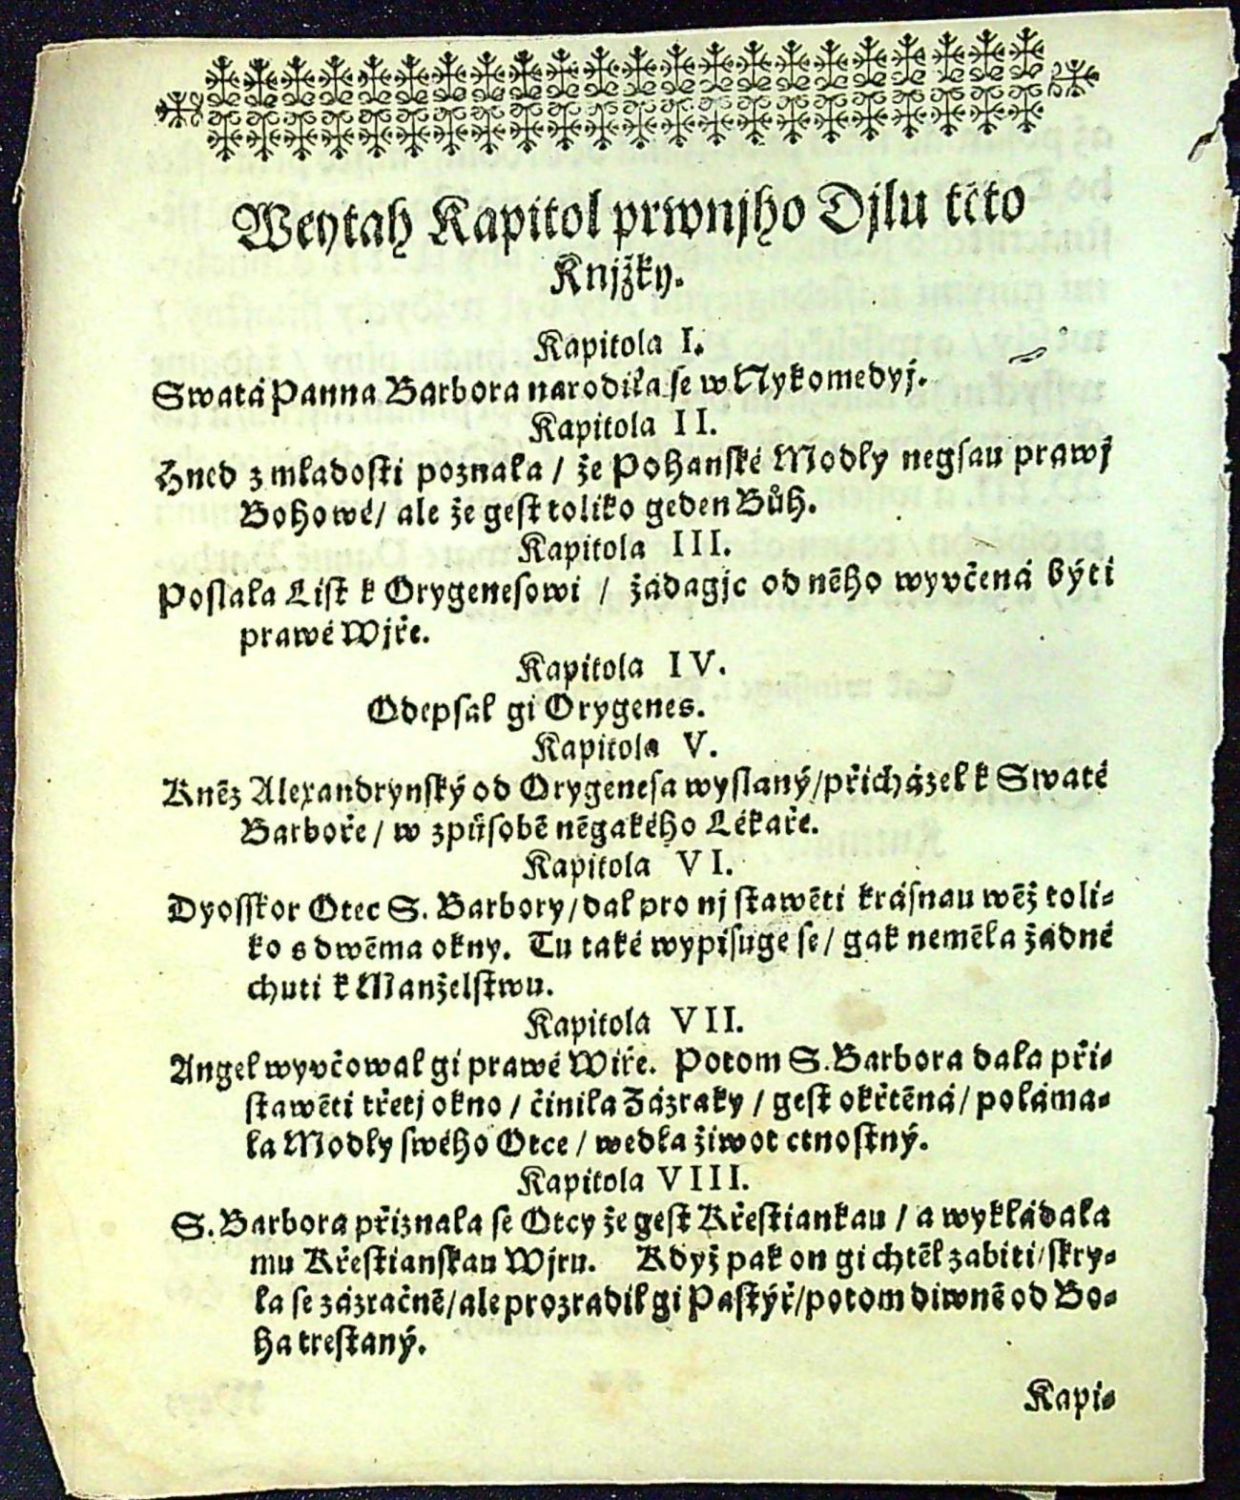 Weytah Kapitol prwnjho Djlu této
Knjžky.
Kapitola I.
Swatá Panna Barbora narodila se w Nykomedyj.
Kapitola II.
Hned z mladosti poznala / že Pohanské Modly negsau prawj
Bohowé / ale že gest toliko geden Bůh.
Kapitola III.
Poslala List k Orygenesowi / žádagjc od něho wyvčená býti
prawé Wjře.
Kapitola IV.
Odepsal gi Orygenes.
Kapitola V.
Kněz Alexandrynský od Orygenesa wyslaný / přicházel k Swaté
Barboře / w způsobě něgakého Lékaře.
Kapitola VI.
Dyosskor Otec S. Barbory / dal pro nj stawěti krásnau wěž toli-
ko s dwěma okny. Tu také wypisuge se / gak neměla žádné
chuti k Manželstwu.
Kapitola VII.
Angel wyvčowal gi prawé Wiře. Potom S. Barbora dala při-
stawěti třetj okno / činila Zázraky / gest okřtěná / poláma-
la Modly swého Otce / wedla žiwot ctnostný.
Kapitola VIII.
S. Barbora přiznala se Otcy že gest Křestiankau / a wykládala
mu Křestianskau Wjru. Když pak on gi chtěl zabiti / skry-
la se zázračně / ale prozradil gi Pastýř / potom diwně od Bo-
ha trestaný.
Kapi-